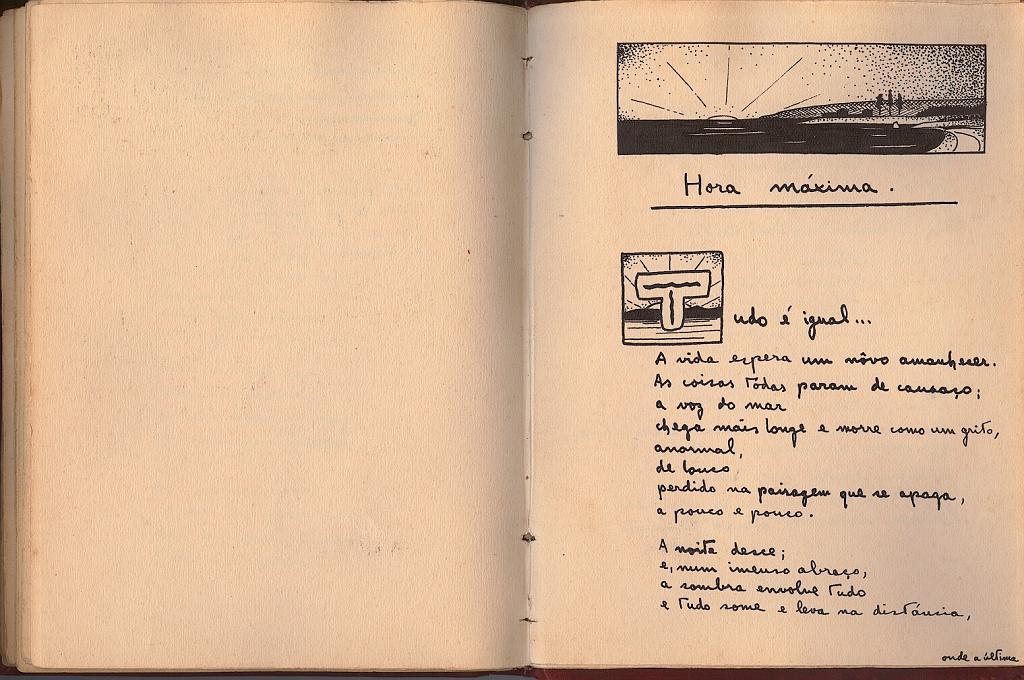 Hora máxima.
Tudo é igual...
A vida espera um nôvo amanhecer.
As coisas tôdas param de cansaço;
a voz do mar
chega mais longe e morre como um grito,
anormal,
de louco
perdido na paisagem que se apaga,
a pouco e pouco.
A noite desce;
e, num imenso abraço,
a sombra envolve tudo
e tudo some e leva na distância,
onde a última